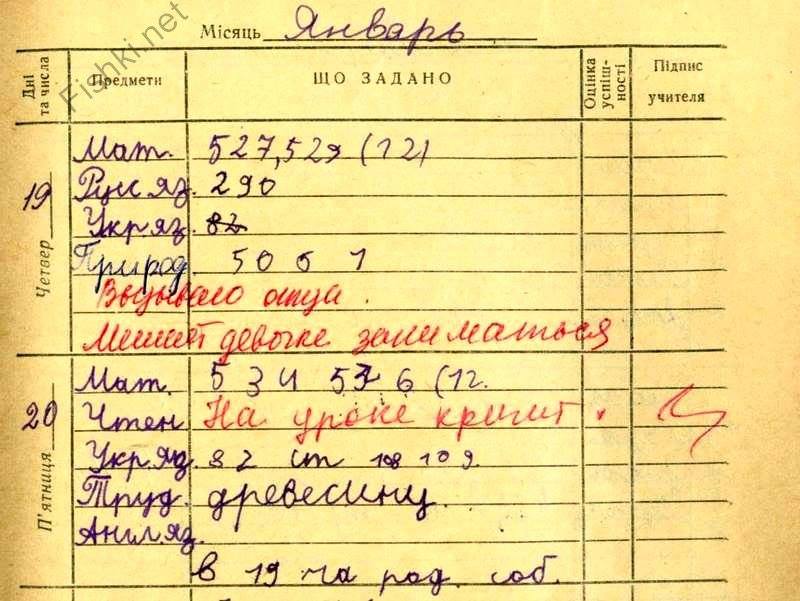 Fishki.net
Місяць Январь
Дні та числа Предмети ЩО ЗАДАНО Оцінка успіш-ності Підпис учителя
19 Четвер
Мат. 527,529 (12)
Русс яз. 290
Укр.яз. 82
Природ 50 6 1
Вызываю отца.
Мешает девочке заниматься
20 П'ятниця
Мат. 534 532 6 (12.
Чтен На уроке кричит.
Укр.яз. 82 ст 108 109.
Труд. древесину.
Англ.яз.
в 19 ча род. соб.